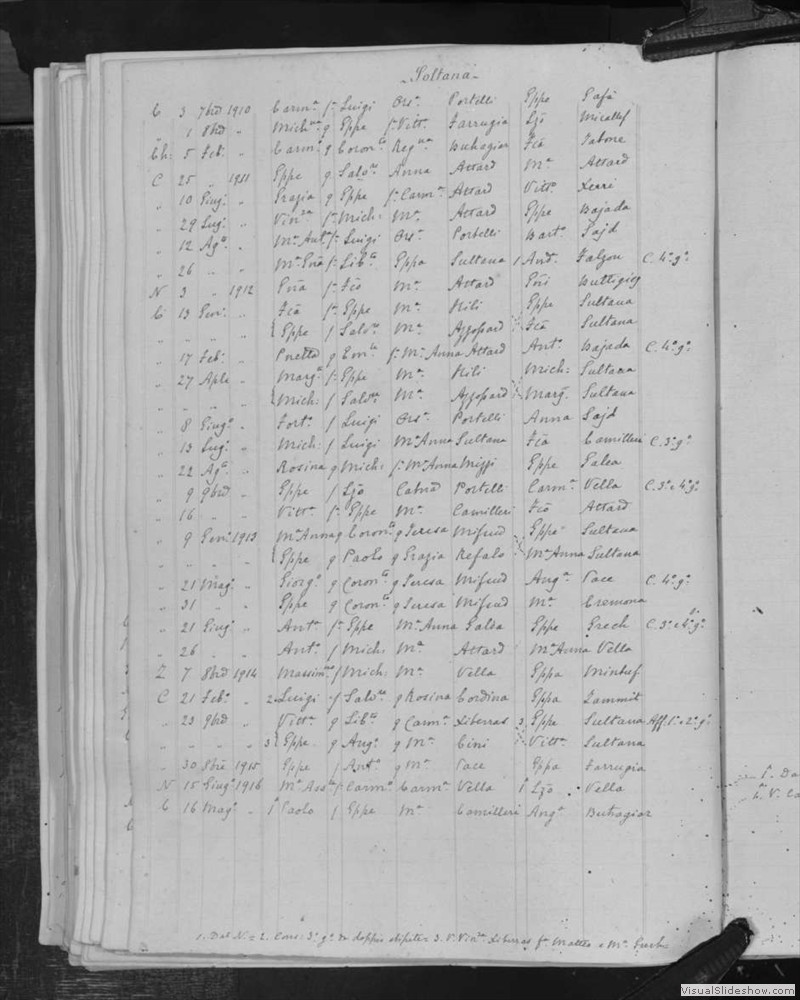 Soltana
C 3 7bre 1910 Carmª f. Luigi Orsª Portelli Eppe Gafà
" 1 8bre " Mich g Eppe f. Vittª Farrugia Lzò Micallef
Ch: 5 Feb: " Carmª g Coron Regna Buhagiar Fcò Tabone
C 25 " 1911 Eppe g Salvre Anna Attard Mª Attard
" 10 Giugº " Grazia g Eppe f. Carmª Attard Vittº Xerri
" 29 Lugº " Vinza f. Mich: Mª Attard Eppe Bajada
" 12 Agº " Mª Antª f. Luigi Orsª Portelli Bartº Sajd
" 26 " " Mª f. Libre Eppa Sultana 1 Antº Falzon C. 4º gº
N 3 " 1912 f. Fcò Mª Attard Buttigieg
C 13 " Fcà f. Eppe Mª Hili Eppe Sultana
" " " " Eppe f. Salvre Mª Azzopard Fcà Sultana
" 17 Feb: " g f. Mª Anna Attard Antº Bajada C. 4º gº
" 27 Aple " Margª f. Eppe Mª Hili Mich: Sultana
" " " " Mich: f. Salvre Mª Azzopard Margª Sultana
" 8 Giugº " Fortº f Luigi Orsª Portelli Anna Sajd
" 13 Lugº " Mich: f Luigi Mª Anna Sultana Fcà Camilleri C. 3º gº
" 22 Agº " Rosina g Mich: f. Mª Anna Mizzi Eppe Galea
" 9 9bre " Eppe f Lzò Portelli Carmª Vella C. 3º e 4º gº
" 16 " " Vittª f. Eppe Mª Camilleri Fcò Attard
" 9 1913 Mª Anna g Coron g Teresa Mifsud Eppe Sultana
" " " " Eppe g Paolo g Grazia Refalo Mª Anna Sultana
" 21 Magº " Giorgº g Coron g Teresa Mifsud Angª Pace C. 4º gº
" 31 " " Eppe g Coron g Teresa Mifsud Mª Cremona
" 21 Giugº " Antª f. Eppe Mª Anna Galea Eppe Grech C. 3º e 4º gº
" 26 " " Antº f Mich: Mª Attard Mª Anna Vella
Z 7 8bre 1914 f Mich: Mª Vella Eppa Mintuf
C 21 Febº " 2 Luigi f Salvre g Rosina Cordina Eppa Zammit
" 23 9bre " Vittª g Libre g Carmª Xiberras 3 Eppe Sultana Aff. 1º e 2º gº
" " " " 3 Eppe g Angº g Mª Cini Vittª Sultana
" 30 8bre 1915 Eppe f Antº g Mª Pace Eppa Farrugia
N 15 Giugº 1916 Mª Assª f. Carmº Carmª Vella 1 Lzò Vella
C 16 Magº " 1 Paolo f Eppe Mª Camilleri Angª Buhagiar
1. Dal N. = 2. Cons: 3º gº da doppio stipite = 3. V. Xiberras fª Matteo e Mª Grech
VisualSlideshow.com